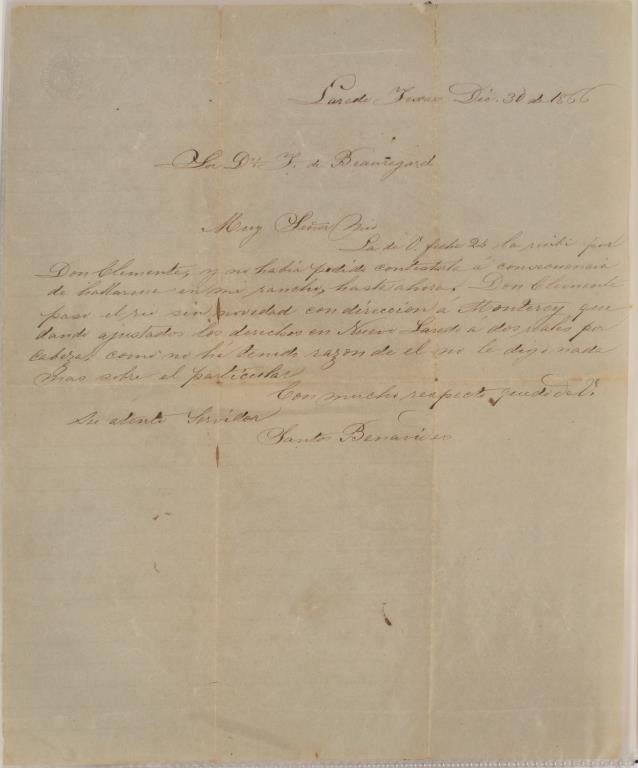 Laredo Texas Dic. 30 de 1866
Sor Dn F. de Beauregard
Muy Señor Mio
La de V. fecha 24 la recibi por
Don Clemente, y no habia podido contestarla á consecuencia
de hallarme en mi rancho, hasta ahora. Don Clemente
paso el rio sin novedad con direccion á Monterey que
dando ajustados los derechos en Nuevo Laredo a dos reales por
cabeza, como no hé tenido razon de el no le digo nada
mas sobre el particular
Con mucho respecto quedo de V.
Su atento Servidor
Santos Benavides